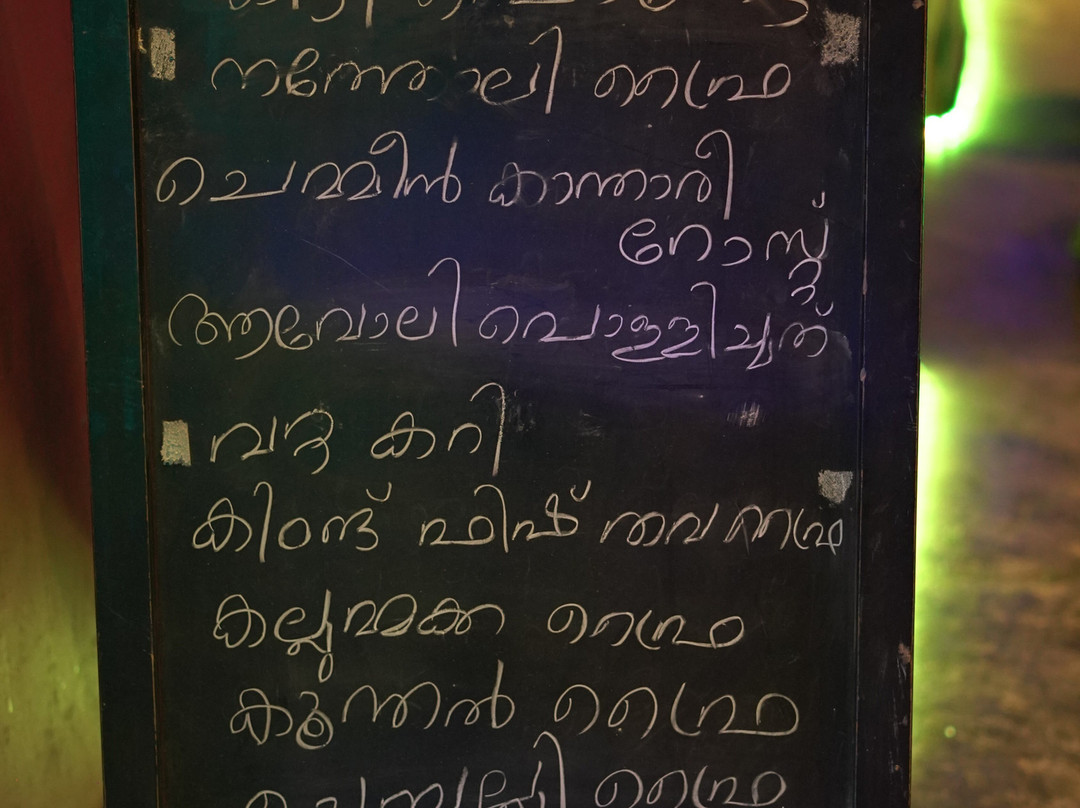 നത്തോലി ഫ്രൈ
ചെമ്മീൻ കാന്താരി
റോസ്റ്റ്
ആവോലി പൊള്ളിച്ചത്
വറ്റ കറി
കിംങ് ഫിഷ് തവ ഫ്രൈ
കല്ലുമ്മക്ക ഫ്രൈ
കൂന്തൽ ഫ്രൈ
ഫ്രൈ